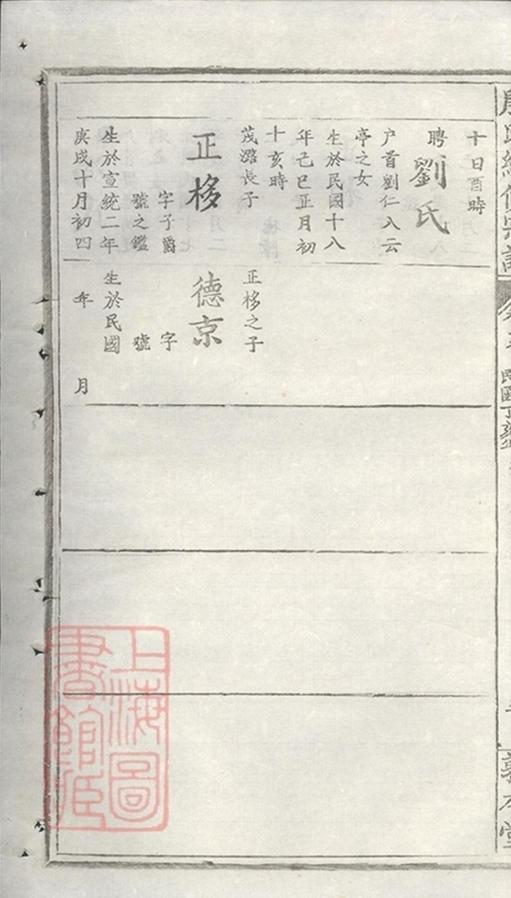 十日酉時
聘劉氏
户首劉仁入云
亭之女
生於民國十八
年己巳正月初
十亥時
茂濰長子
正移
字子爵
號之鑑
生於宣統二年
庚戌十月初四
正移之子
德京
字
號
生於民國
年 月
上海圖
書館藏